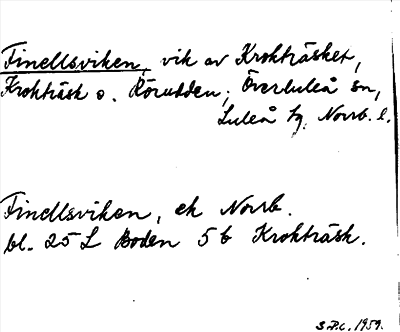 Finellsviken, vik av Krokträsket,
Krokträsk o. Rörudden, Överluleå sn,
Luleå tg. Norrb. l.
Finellsviken, ek Norrb.
bl. 25 L Boden 5 b Krokträsk.
S.P.C., 1959.